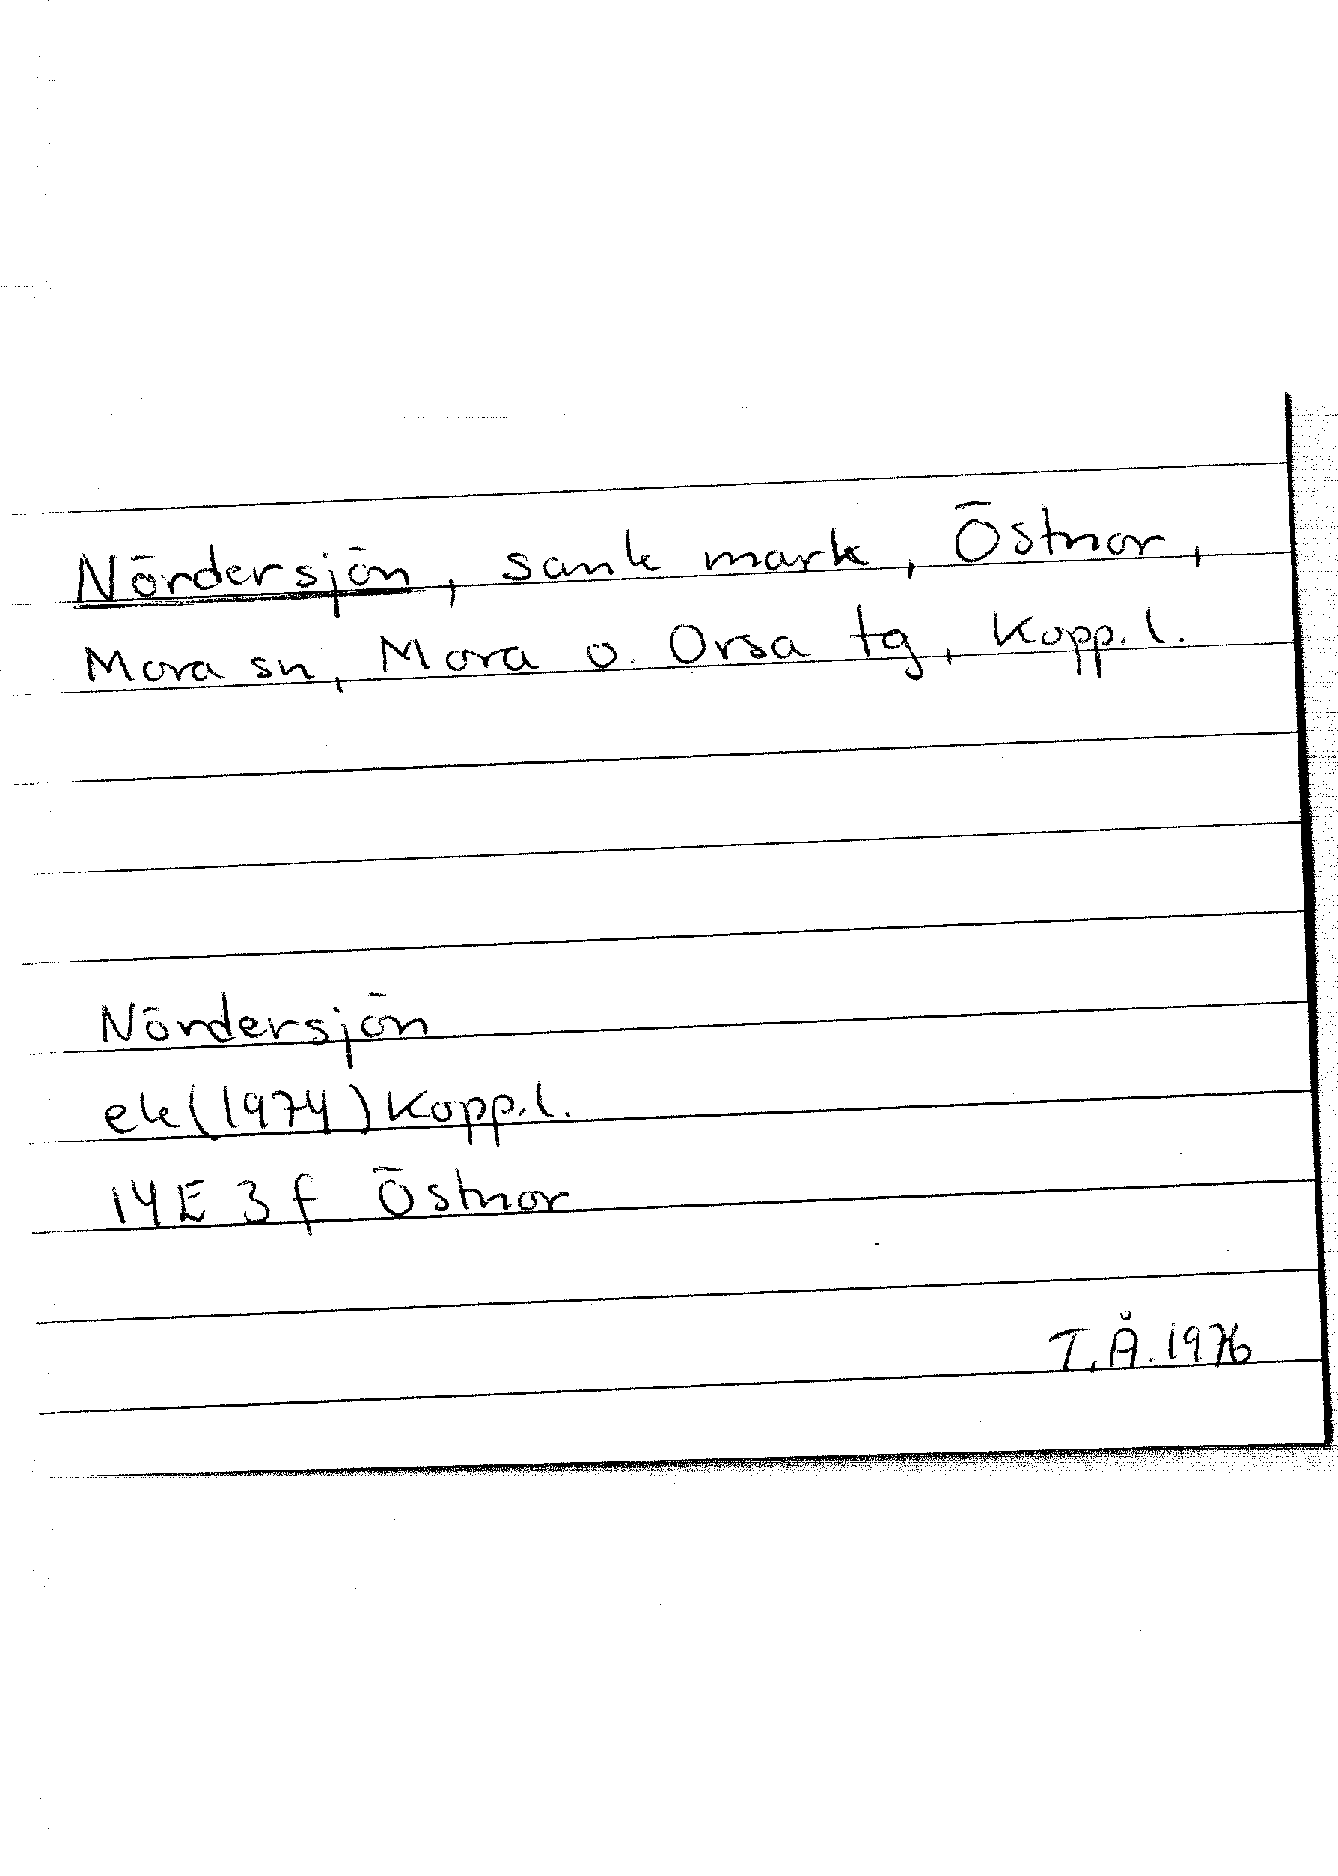 Nördersjön, sank mark, Östnor,
Mora sn, Mora o. Orsa tg, Kopp. l.
Nördersjön
ek (1974) Kopp. l.
14E 3 f Östnor
T. Å. 1976